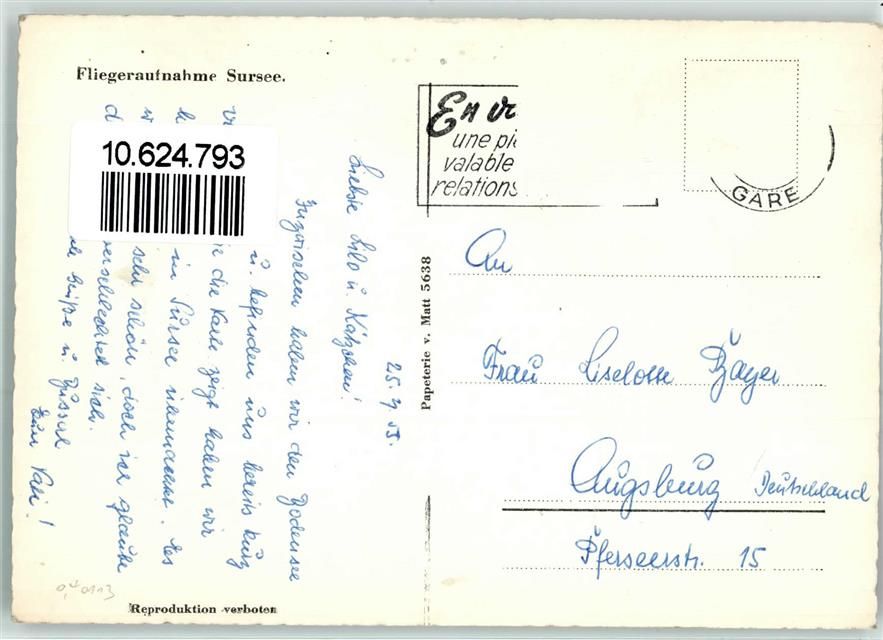 Fliegeraufnahme Sursee.
10.624.793
En
une
valable
relations
GARE
25. 9. 55.
Liebe Lilo u. Kätzchen!
Inzwischen haben wir den Bodensee
u. befinden uns bereits kurz
die Karte zeigt haben wir
in Sursee
sehr schön, doch ich glaube
verschlechtert sich.
Grüße u. Bussal
Euer Vati!
Papeterie v. Matt 5638
An
Frau Liselotte Bayer
Augsburg Deutschland
Pferseerstr. 15
Reproduktion verboten